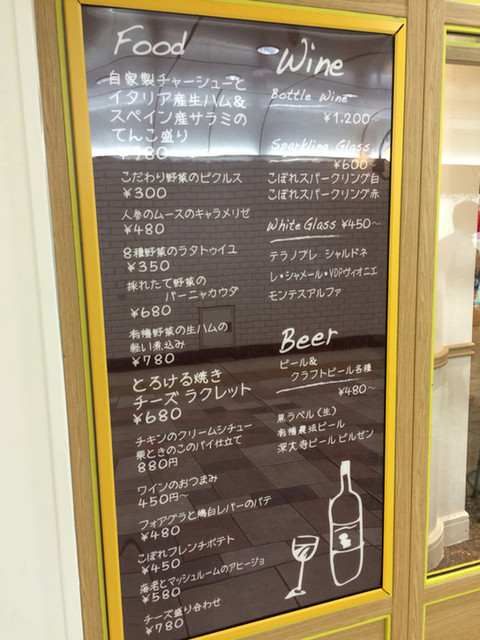 Food
自家製チャーシューと
イタリア産生ハム&
スペイン産サラミの
てんこ盛り
¥980
こだわり野菜のピクルス
¥300
人参のムースのキャラメリゼ
¥480
8種野菜のラタトゥイユ
¥350
採れたて野菜の
バーニャカウダ
¥680
有機野菜の生ハムの
軽い煮込み
¥780
とろける焼き
チーズ ラクレット
¥680
チキンのクリームシチュー
栗ときのこのパイ仕立て
880円
ワインのおつまみ
450円〜
フォアグラと鶏白レバーのパテ
¥480
こぼれフレンチポテト
¥450
海老とマッシュルームのアヒージョ
¥580
チーズ盛り合わせ
¥780
Wine
Bottle Wine
¥1,200〜
Sparkling Glass
¥600〜
こぼれスパークリング白
こぼれスパークリング赤
White Glass ¥450〜
テラノブレ シャルドネ
レ・シャメール・VDPヴィオニエ
モンテスアルファ
Beer
ビール&
クラフトビール各種
¥480〜
黒ラベル(生)
有機農法ビール
深大寺ビール ピルゼン